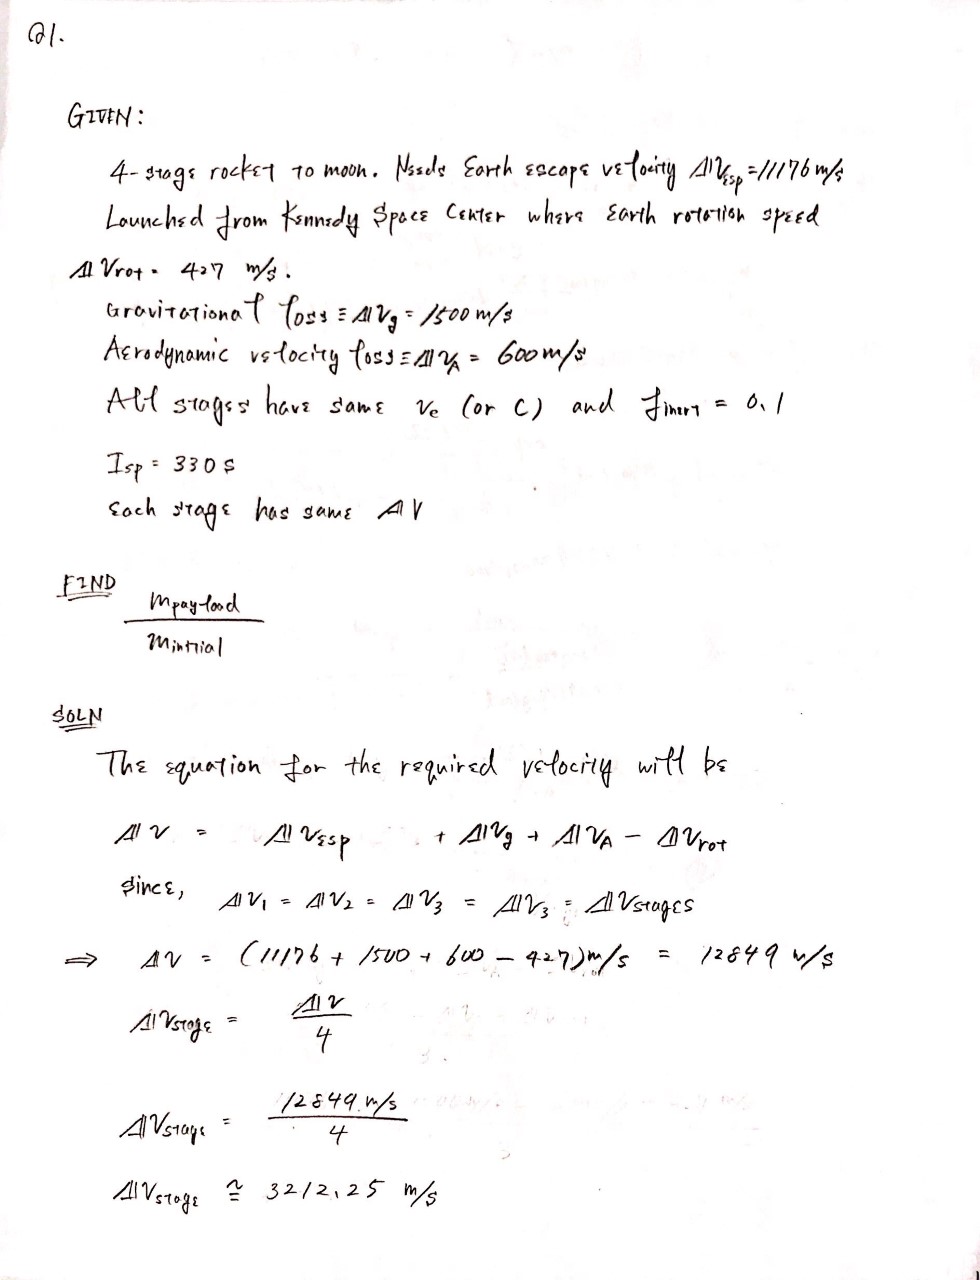 Q1.
GIVEN:
4-stage rocket to moon. Needs Earth escape velocity ΔVesp = 11176 m/s
Launched from Kennedy Space Center where Earth rotation speed
ΔVrot = 427 m/s.
Gravitational loss ≡ ΔVg = 1500 m/s
Aerodynamic velocity loss ≡ ΔVA = 600 m/s
All stages have same Ve (or C) and finert = 0.1
Isp = 330 s
Each stage has same ΔV
FIND
mpayload
minitial
SOLN
The equation for the required velocity will be
ΔV = ΔVesp + ΔVg + ΔVA − ΔVrot
Since, ΔV1 = ΔV2 = ΔV3 = ΔV3 = ΔVstages
⇒ ΔV = (11176 + 1500 + 600 − 427)m/s = 12849 m/s
ΔVstage = ΔV
4
ΔVstage = 12849 m/s
4
ΔVstage ≅ 3212.25 m/s